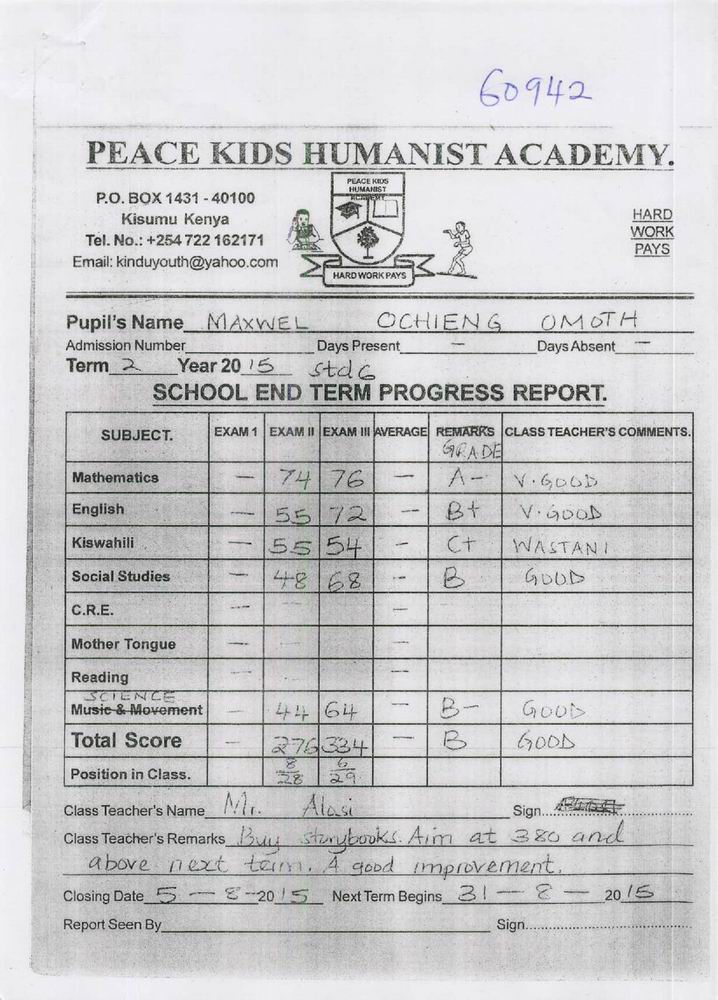 60942
PEACE KIDS HUMANIST ACADEMY.
P.O. BOX 1431 - 40100
Kisumu Kenya
Tel. No.: +254 722 162171
Email: kinduyouth@yahoo.com
PEACE KIDS
HUMANIST
ACADEMY
HARD WORK PAYS
HARD
WORK
PAYS
Pupil's Name MAXWEL OCHIENG OMOTH
Admission Number Days Present — Days Absent —
Term 2 Year 20 15 std 6
SCHOOL END TERM PROGRESS REPORT.
SUBJECT. EXAM 1 EXAM II EXAM III AVERAGE REMARKS CLASS TEACHER'S COMMENTS.
GRADE
Mathematics — 74 76 — A- V.GOOD
English — 55 72 — B+ V.GOOD
Kiswahili — 55 54 — C+ WASTANI
Social Studies — 48 68 -- B GOOD
C.R.E. — —
Mother Tongue — —
Reading — —
SCIENCE
Music & Movement — 44 64 — B- GOOD
Total Score — 276 334 — B GOOD
Position in Class. 8/28 6/29
Class Teacher's Name Mr. Alosi Sign
Class Teacher's Remarks Buy storybooks. Aim at 380 and
above next term. A good improvement.
Closing Date 5 — 8 - 20 15 Next Term Begins 31 — 8 — 20 15
Report Seen By Sign